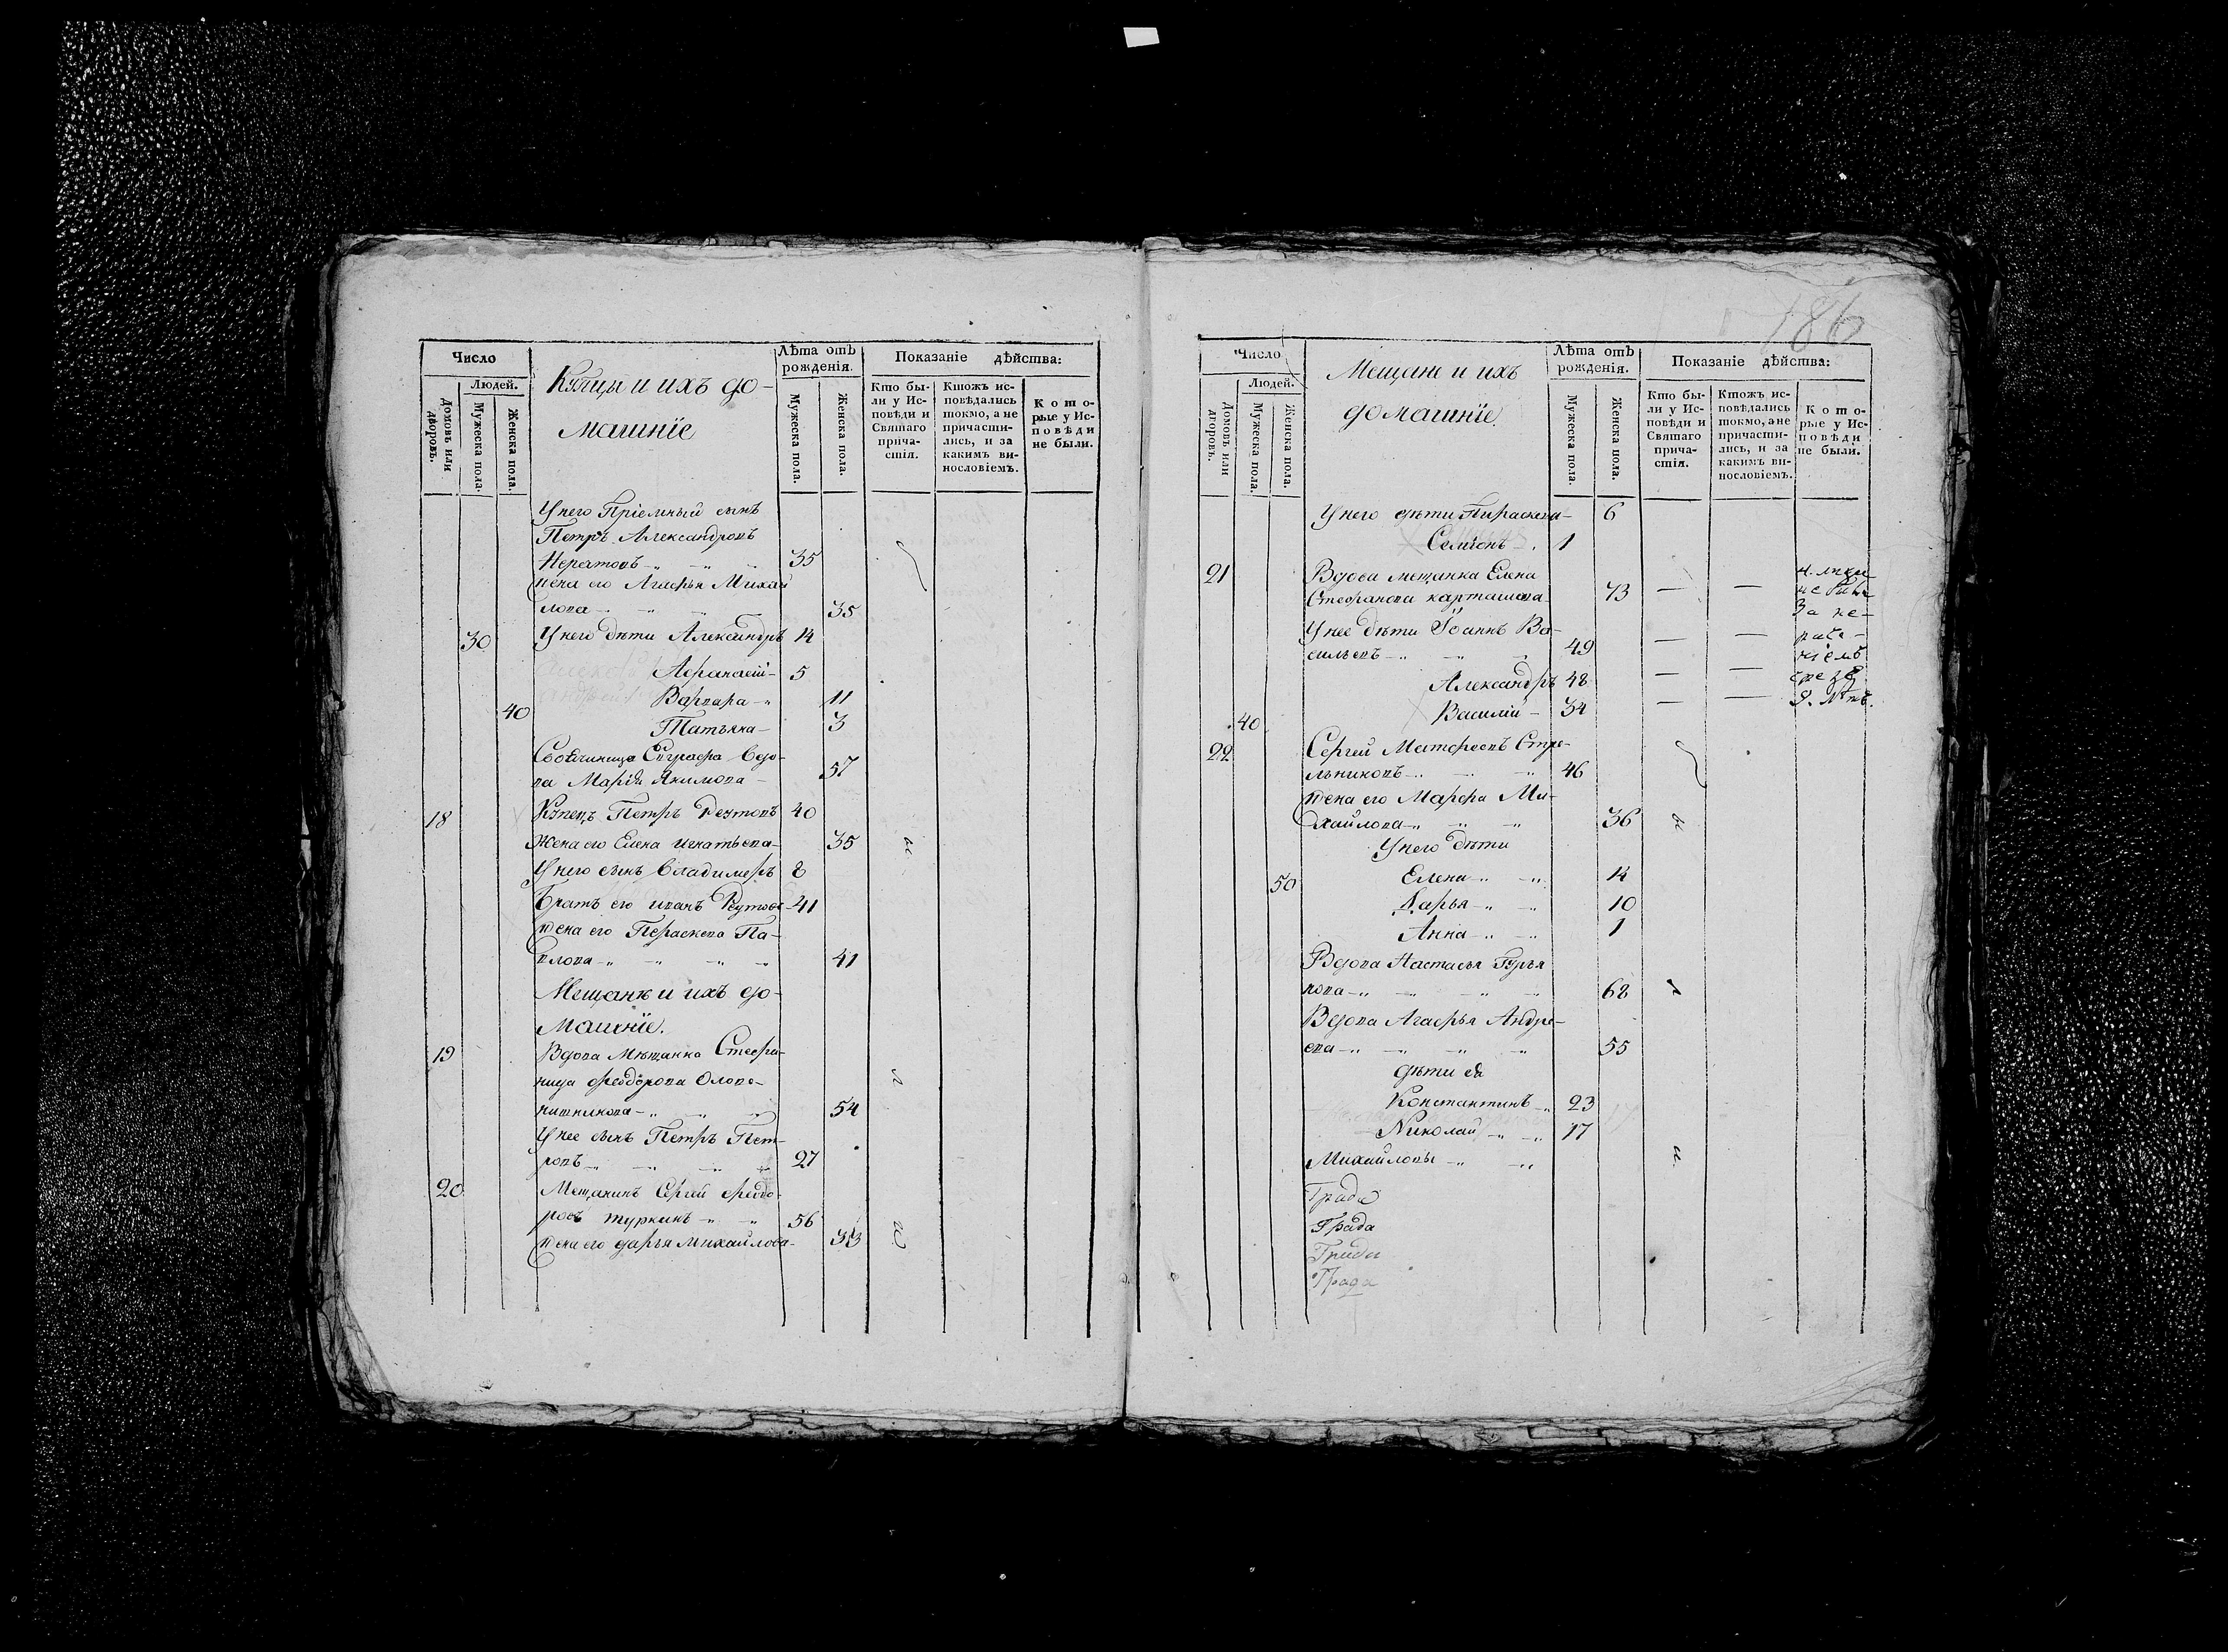 Число
Людей.
Домовъ или дворовъ.
Мужеска пола.
Женска пола.
Купцы и ихъ до-
машніе
Лѣта отъ рожденія.
Мужеска пола.
Женска пола.
Показаніе дѣйства:
Кто бы-
ли у Ис-
повѣди и
Святаго
прича-
стія.
Ктожъ ис-
повѣдались
токмо, а не
причасти-
лись, и за
какимъ ви-
нословіемъ.
Кото-
рые у Ис-
повѣди
не были.
У него Пріемный сынъ
Петръ Александровъ
35
жена его Агафья Михай
лова 35
30 У него дѣти Александръ 14
Афанасій 5
Варвара 11
40
Татьяна 3
вдо-
ва Марія Якимова 57
18 Купецъ Петръ Реутовъ 40
Жена его Елена Игнатьева 35
У него сынъ Владимеръ 8
Братъ его Иванъ Реутовъ 41
жена его Пераскева Па-
влова 41
Мещане и ихъ до-
машніе.
19 Вдова Мѣщанка Стефа-
нида Феодорова Олове-
нишникова 54
У нее сынъ Петръ Пет-
ровъ 27
20 Мещанинъ Сергей Феодо-
ровъ Туркинъ 56
жена его Дарья Михайлова 33
186
Число
Людей.
Домовъ или дворовъ.
Мужеска пола.
Женска пола.
Мещане и ихъ
домашніе.
Лѣта отъ рожденія.
Мужеска пола.
Женска пола.
Показаніе дѣйства:
Кто бы-
ли у Ис-
повѣди и
Святаго
прича-
стія.
Ктожъ ис-
повѣдались
токмо, а не
причасти-
лись, и за
какимъ ви-
нословіемъ.
Кото-
рые у Ис-
повѣди
не были.
У него дѣти Параскева 6
Семіонъ 1
21 Вдова мещанка Елена
Стефанова Карташева 73 — —
За не-
раче-
ніемъ
У нее дѣти Іоаннъ Ва-
сильевъ 49 — —
Александръ 48 — —
Василій 34 — —
40
22 Сергей Матфеевъ Стре-
льниковъ 46
жена его Марфа Ми-
хайлова 36
У него дѣти
50 Елена 14
Дарья 10
Анна 1
Вдова Настасья Гурья
нова 68
Вдова Агафья Андре-
ева 55
дѣти ея
Константинъ 23
Николай 17
Михайловы
Града
Града
Града
Града